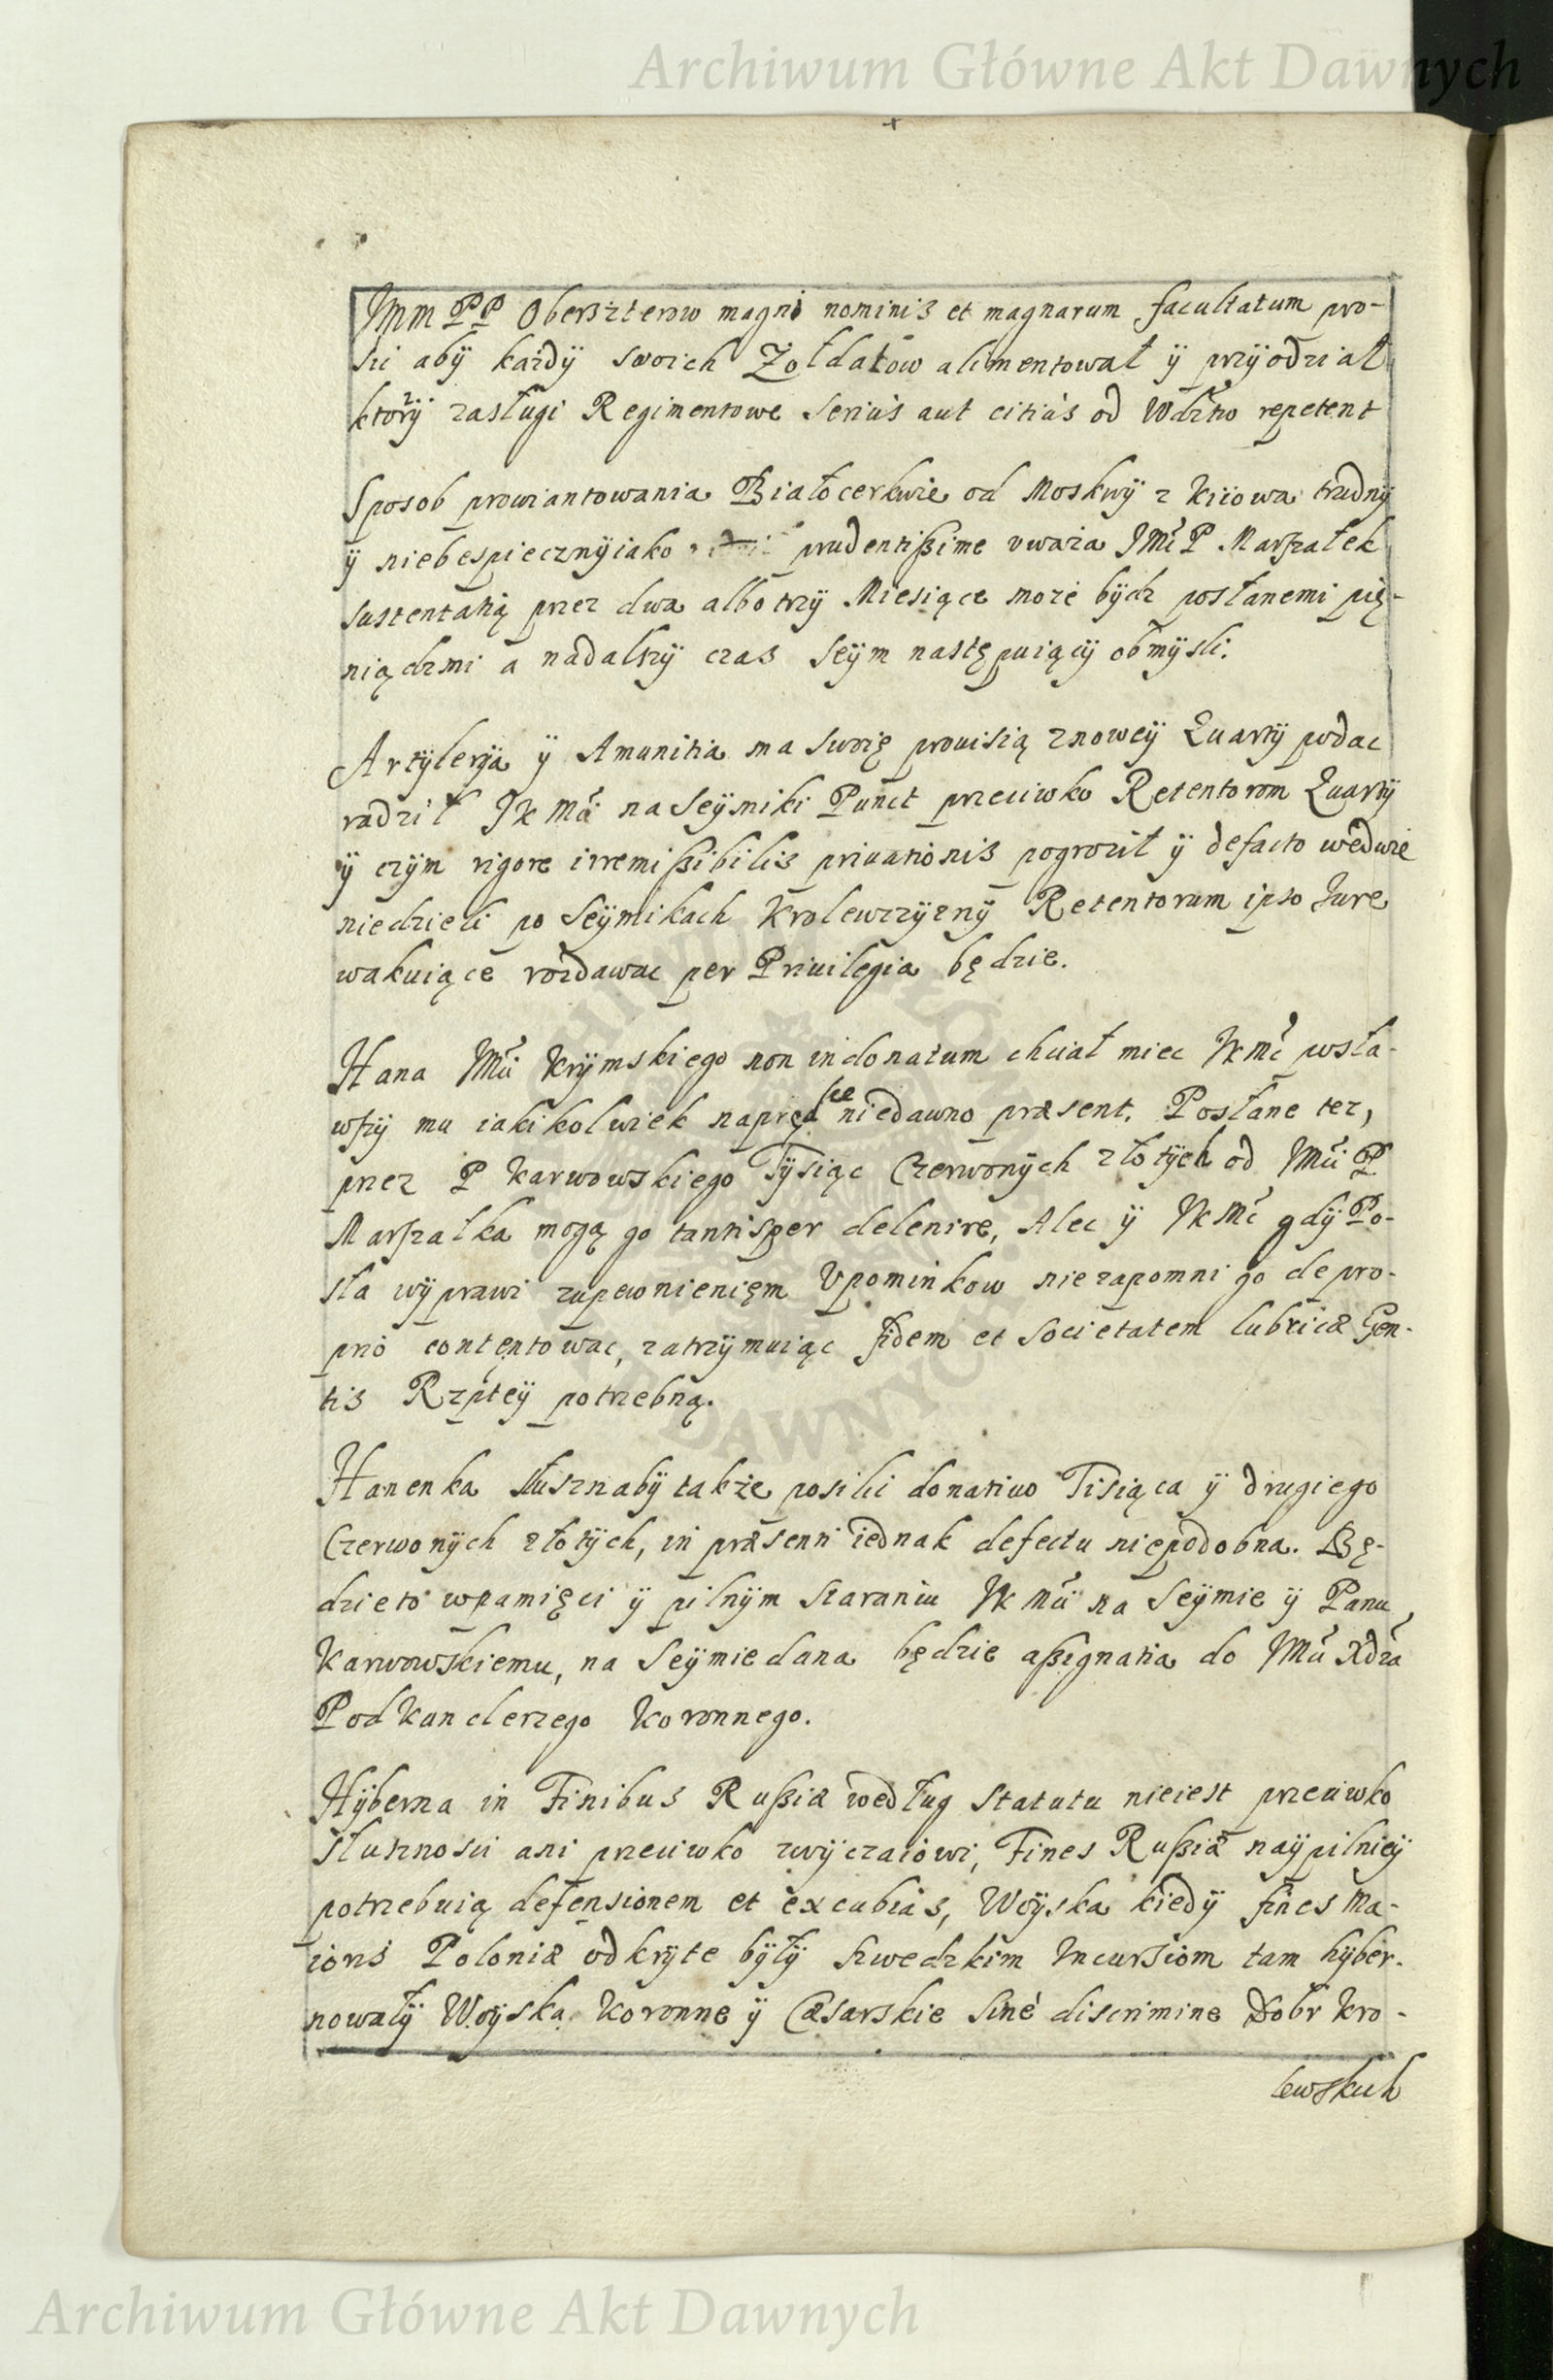 Archiwum Główne Akt Dawnych
JMM PP Oberszterow magni nominis et magnarum facultatum pro-
sić aby każdÿ swoich Zołdatow alimentował ÿ przÿodział
ktorzÿ zasługi Regimentowe seriús aut citiús od Wdztwo repetent
Sposob prowiantowania Białocerkwie od Moskwÿ z Kiiowa trudnÿ
ÿ niebespiecznÿ iako prudentißime uważa JMć P Marszałek
sustentatią przez dwa albo trzÿ Miesiące może bÿdz posłanemi pię-
niądzmi a nadalszÿ czas Seÿm następuiącÿ obmÿsli.
Artÿlerÿa ÿ Amunitia ma swoię prouisią znoweÿ Quartÿ podac
radził JK Mć na Seÿmiki Punct przeciwko Retentorom Quartÿ
ÿ czÿm rigore irremißibilis priuationis pogroził ÿ defacto wedwie
niedzieli po Seÿmikach Krolewzczÿznÿ Retentorum ipso Jure
wakuiące rozdawac per Priuilegia będzie.
Hana JMci Krÿmskiego non indonatum chciał miec JKMć posła-
wszÿ mu iakikolwiek napręd sce niedawno præsent. Posłane tez,
przez P Karwowskiego Tÿsiąc Czerwonÿch złotÿch od JMci P
Marszałka mogą go tantisper delenire, Alec ÿ JKMć gdÿ Po-
sła wÿprawi zupewnienięm Vpominkow niezapomni go de pro-
prio contentowac, zatrzÿmuiąc fidem et Societatem lubricæ Gen-
tis Rzpteÿ potrzebną.
Hanenka słusznabÿ także posilic donatiuo Tisiąca ÿ drugiego
Czerwonÿch złotÿch, in præsenti iednak defectu niepodobna. Bę-
dzie to wpamięci ÿ pilnÿm staraniu JKMci na Seÿmie ÿ Panu
Karwowskiemu, na Seÿmie dana będzie aßignatia do JMci Xdza
PodKanclerzego Koronnego.
Hÿberna in Finibus Rußiæ według Statutu nieiest przeciwko
słusznosci ani przeciwko zwÿczaiowi, Fines Rußiæ naÿpilnieÿ
potrzebuią defensionem et excubias, Woÿska kiedÿ fines Ma-
ioris Poloniæ odkrÿte bÿłÿ szwedzkim Incursiom tam hÿber-
nowałÿ Woÿska Koronne ÿ Cæsarskie siné discrimine Dobr Kro-
lewskich
Archiwum Główne Akt Dawnych